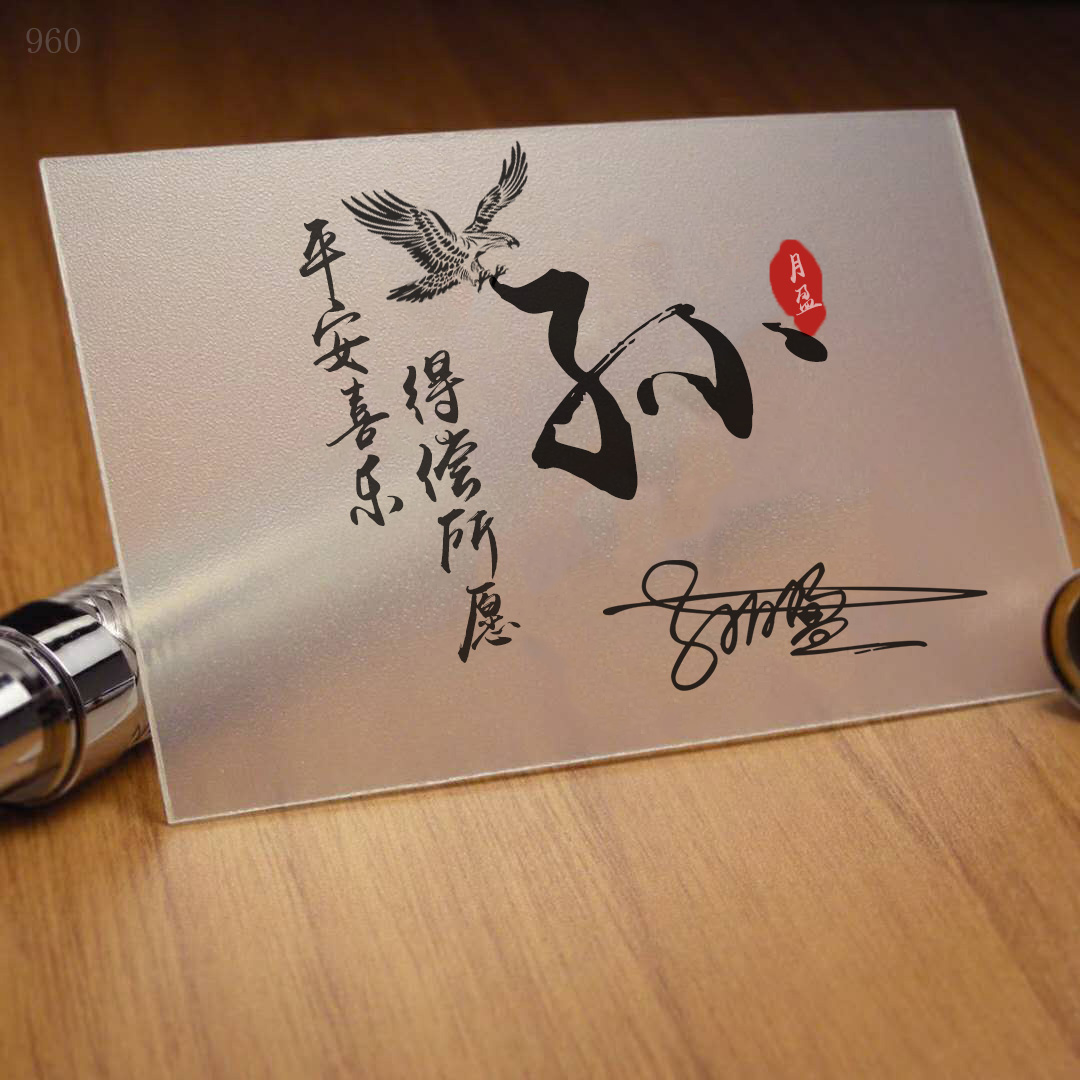 960
平安喜乐
得偿所愿
孙
月盈